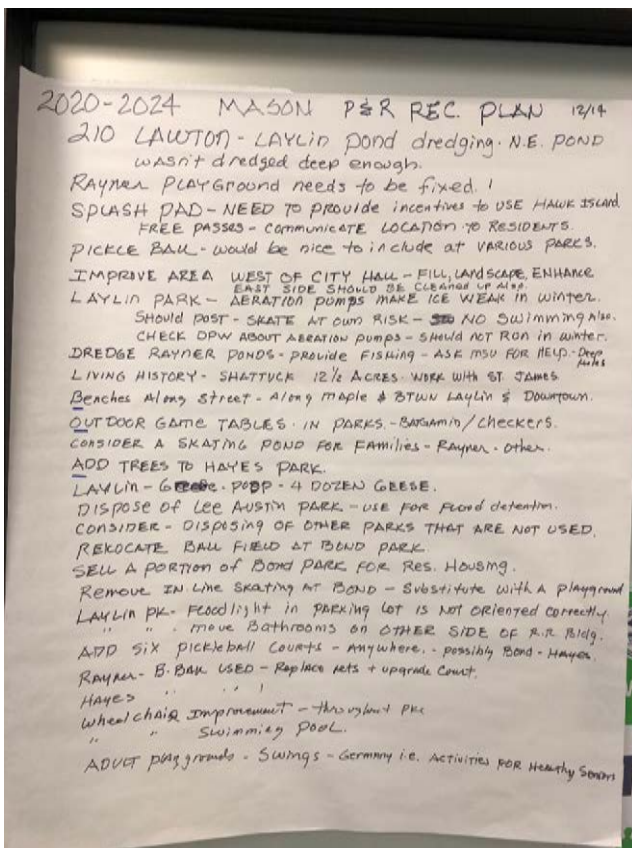 2020-2024 MASON P&R REC. PLAN 12/14
210 LAWTON - LAYLIN pond dredging. N.E. POND
wasn't dredged deep enough.
RAYNER PLAYGround needs to be fixed. !
SPLASH PAD - NEED TO PROVIDE incentives to USE HAWK ISLAND.
FREE PASSES - Communicate LOCATION TO RESIDENTS.
PICKLE BALL - would be nice to include at VARIOUS PARKS.
IMPROVE AREA WEST OF CITY HALL - FILL, LANDSCAPE, ENHANCE
EAST SIDE SHOULD BE CLEANED UP Also.
LAYLIN PARK - AERATION PUMPS MAKE ICE WEAK in winter.
Should post - SKATE AT OWN RISK - NO Swimming Also.
CHECK DPW ABOUT AERATION pumps - Should NOT RUN in winter.
DREDGE RAYNER PONDS - PROVIDE FISHING - ASK MSU FOR HELP. - Deep Holes
LIVING HISTORY - SHATTUCK 12 1/2 ACRES. WORK with ST. JAMES
Benches Along street - Along maple & BTWN LAYLIN & Downtown.
OUTDOOR GAME TABLES. IN PARKS. - /checkers.
CONSIDER A SKATING POND FOR FAMILIES - RAYNER - other.
ADD TREES TO HAYES PARK.
LAYLIN - POOP - 4 DOZEN GEESE.
DISPOSE of Lee AUSTIN PARK - USE FOR FLOOD detention.
CONSIDER - DISPOSING OF OTHER PARKS THAT ARE NOT USED.
REKOCATE BALL FIELD AT BOND PARK
SELL A PORTION of BOND PARK FOR RES. HOUSING.
Remove IN Line SKATING AT BOND - SUBSTITUTE WITH A playground
LAYLIN PK - FLOODlight in PARKING LOT IS NOT ORIENTED CORRECTLY.
" " . move Bathrooms on OTHER SIDE OF R.R Bldg.
ADD SIX PICKLEBALL COURTS - ANYWHERE. - possibly Bond - HAYES.
RAYNER - B. BALL USED - Replace nets + upgrade Court.
HAYES " " !
Wheel CHAIR Improvement - throughout
" " Swimming POOL.
ADULT playgrounds - Swings - Germany i.e. Activities FOR Healthy Seniors